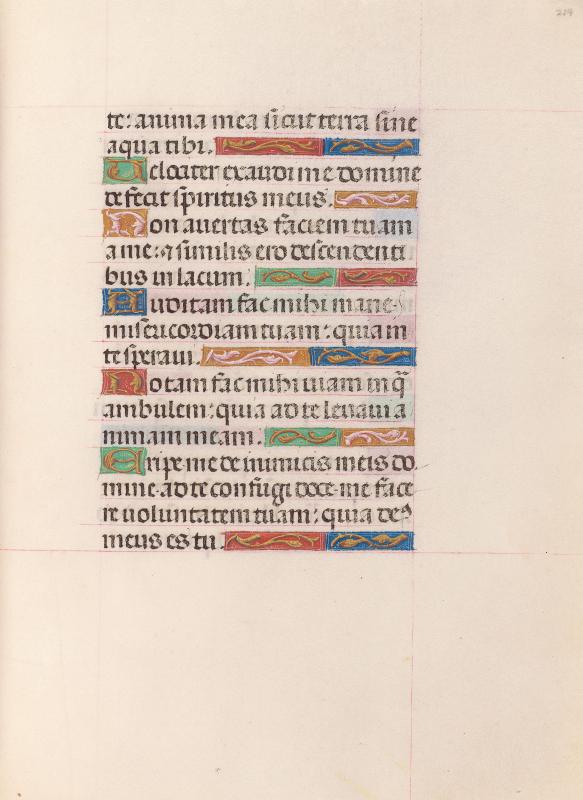 214
te: anima mea sicut terra sine
aqua tibi.
Velociter exaudi me domine
defecit spiritus meus.
Non auertas faciem tuam
a me: ⁊ similis ero descendenti
bus in lacum.
Auditam fac mihi mane
misericordiam tuam: quia in
te speraui.
Notam fac mihi uiam in q̄
ambulem: quia ad te leuaui a
nimam meam.
Eripe me de inimicis meis do
mine. ad te confugi doce me face
re uoluntatem tuam: quia deꝰ
meus es tu.